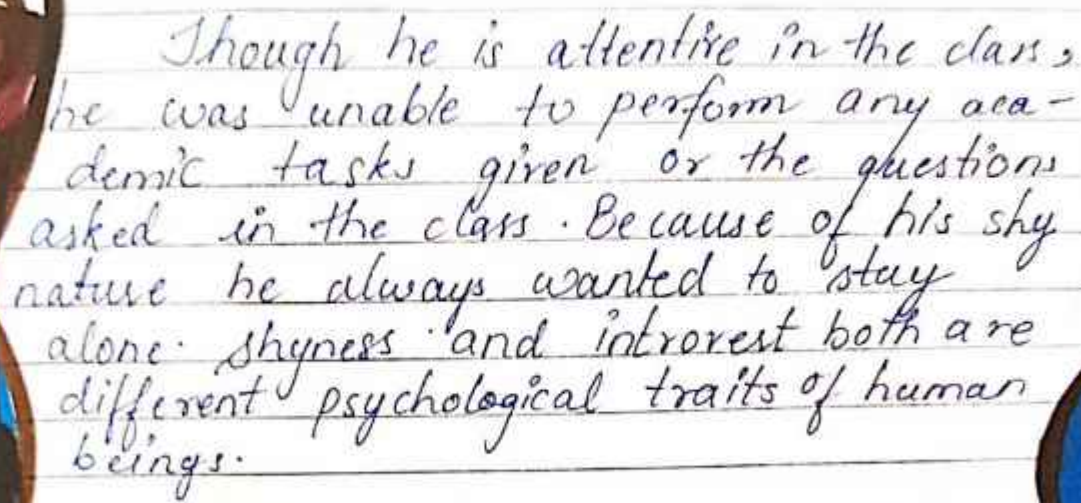 Though he is attentive in the class,
he was unable to perform any aca-
demic tasks given or the questions
asked in the class. Because of his shy
nature he always wanted to stay
alone. shyness and introvest both are
different psychological traits of human
beings.